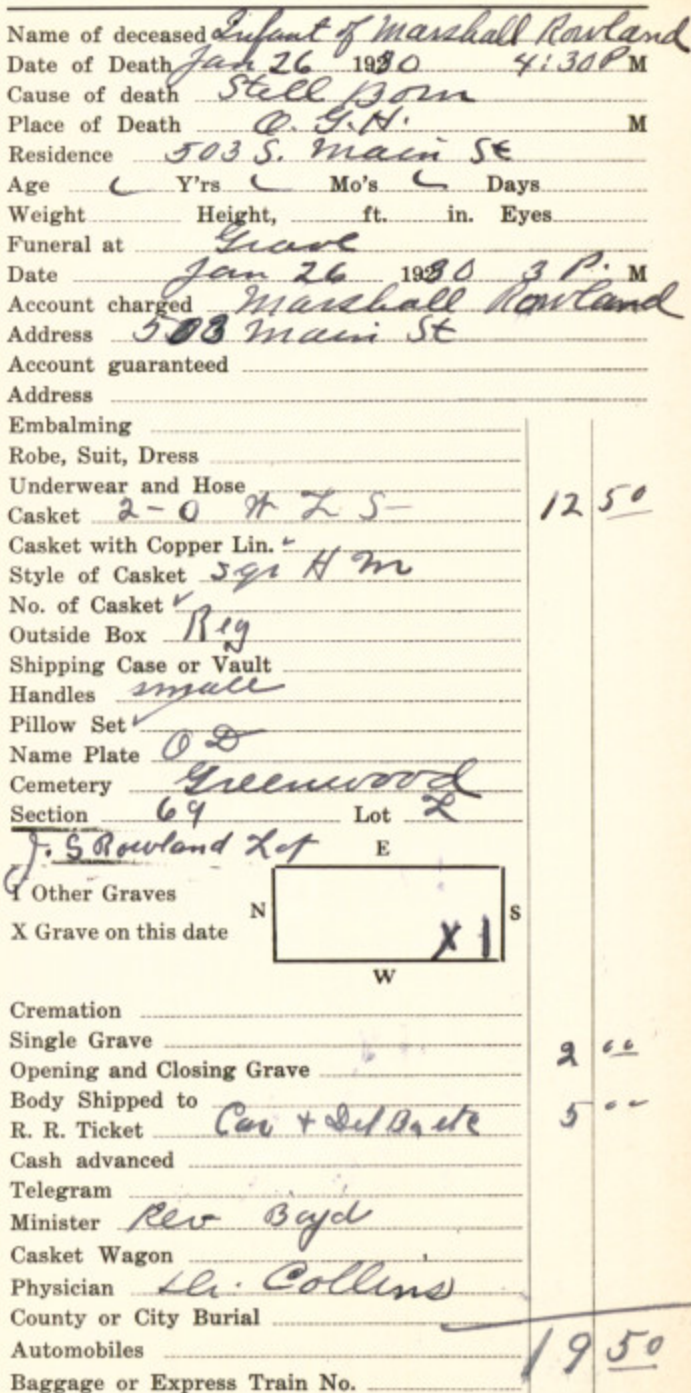 Name of deceased Infant of Marshall Rowland
Date of Death Jan 26 1930 4:30 P M
Cause of death Still Born
Place of Death O. G. H. M
Residence 503 S. Main St
Age Y'rs Mo's Days
Weight Height, ft. in. Eyes
Funeral at Grave
Date Jan 26 1930 3 P. M
Account charged Marshall Rowland
Address 503 Main St
Account guaranteed
Address
Embalming
Robe, Suit, Dress
Underwear and Hose
Casket 2-0 S 12 50
Casket with Copper Lin.
Style of Casket sqr H M
No. of Casket
Outside Box Reg
Shipping Case or Vault
Handles small
Pillow Set
Name Plate O D
Cemetery Greenwood
Section 69 Lot
J. S Rowland Lot
E
1 Other Graves
N S
X Grave on this date
X 1
W
Cremation
Single Grave
Opening and Closing Grave 2 00
Body Shipped to
R. R. Ticket Car + 5 00
Cash advanced
Telegram
Minister Rev Boyd
Casket Wagon
Physician Dr. Collins
County or City Burial
Automobiles 19 50
Baggage or Express Train No.